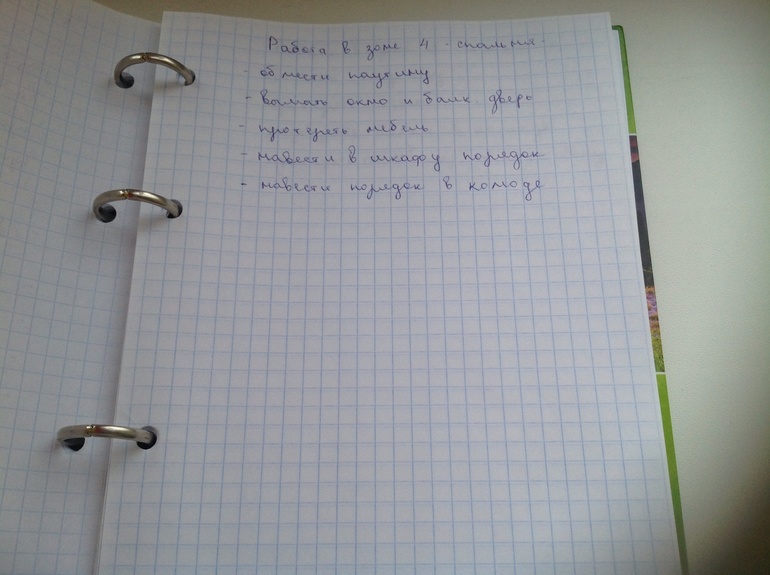 Работа в зоне 4 - спальня -
- обмести паутину
- вымыть окно и балк дверь
- протереть мебель
- навести в шкафу порядок
- навести порядок в комоде